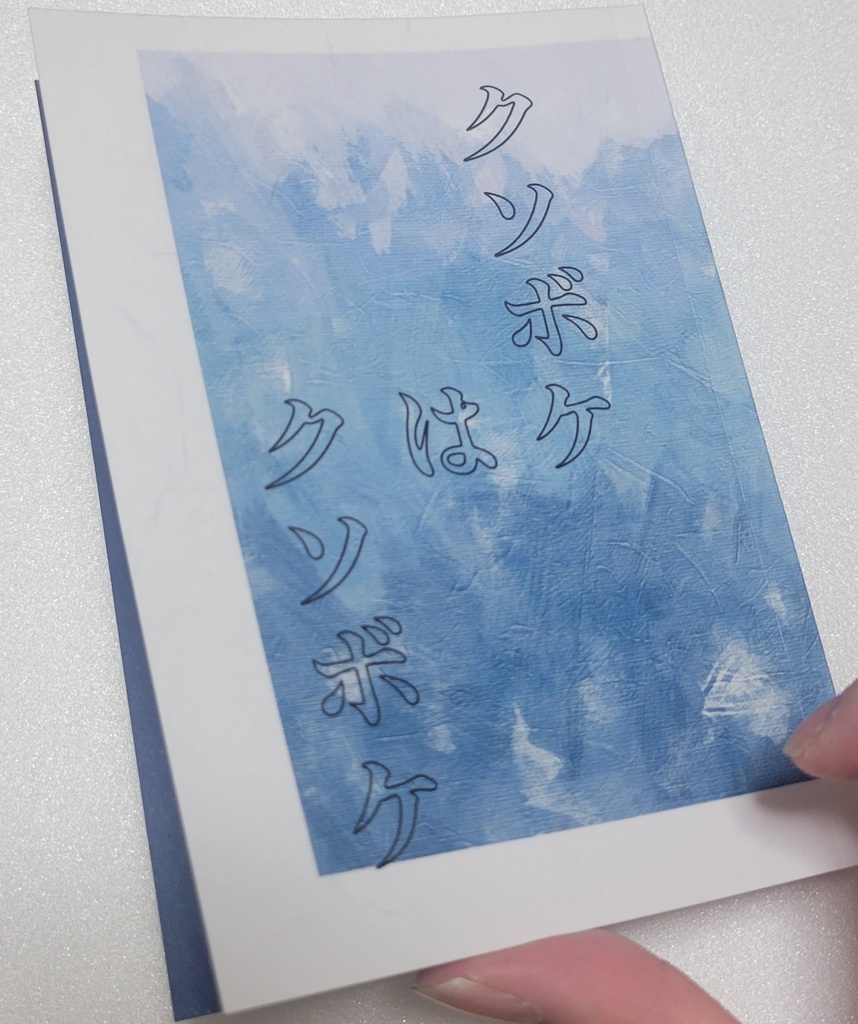 クソボケ
は
クソボケ